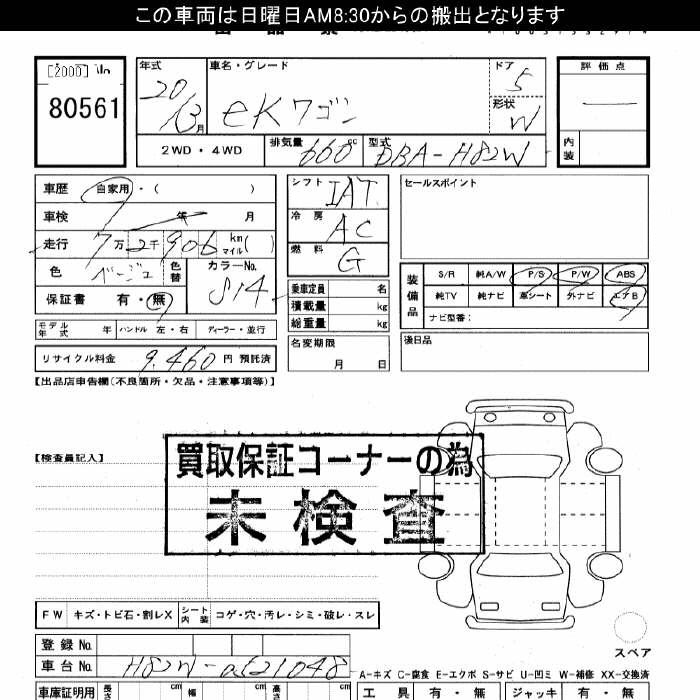 この車両は日曜日AM8:30からの搬出となります
[2000]
80561
年式 20/3月
車名・グレード eKワゴン
ドア 5
形状 W
2WD・4WD
排気量 660cc
型式 DBA-H82W
評価点 —
内装
車歴 自家用・( )
車検 年 月
走行 7万2千906km マイル( )
色 ベージュ 色替 カラーNo. S14
保証書 有・無
モデル年式 年 ハンドル 左・右 ディーラー・並行
リサイクル料金 9,460円 預託済
シフト IAT
冷房 AC
燃料 G
乗車定員 名
積載量 kg
総重量 kg
名変期限 月 日
セールスポイント
装備品 S/R 純A/W P/S P/W ABS
純TV 純ナビ 革シート 外ナビ エアB
ナビ型番:
後日品
【出品店申告欄(不良箇所・欠品・注意事項等)】
【検査員記入】
買取保証コーナーの為
未検査
FW キズ・トビ石・割レX シート内装 コゲ・穴・汚レ・シミ・破レ・スレ
スペア
登録No.
車台No. H82W-
A-キズ C-腐食 E-エクボ S-サビ U-凹ミ W-補修 XX-交換済
車庫証明用 長さ cm 幅 cm 高さ cm
工具 有・無 ジャッキ 有・無